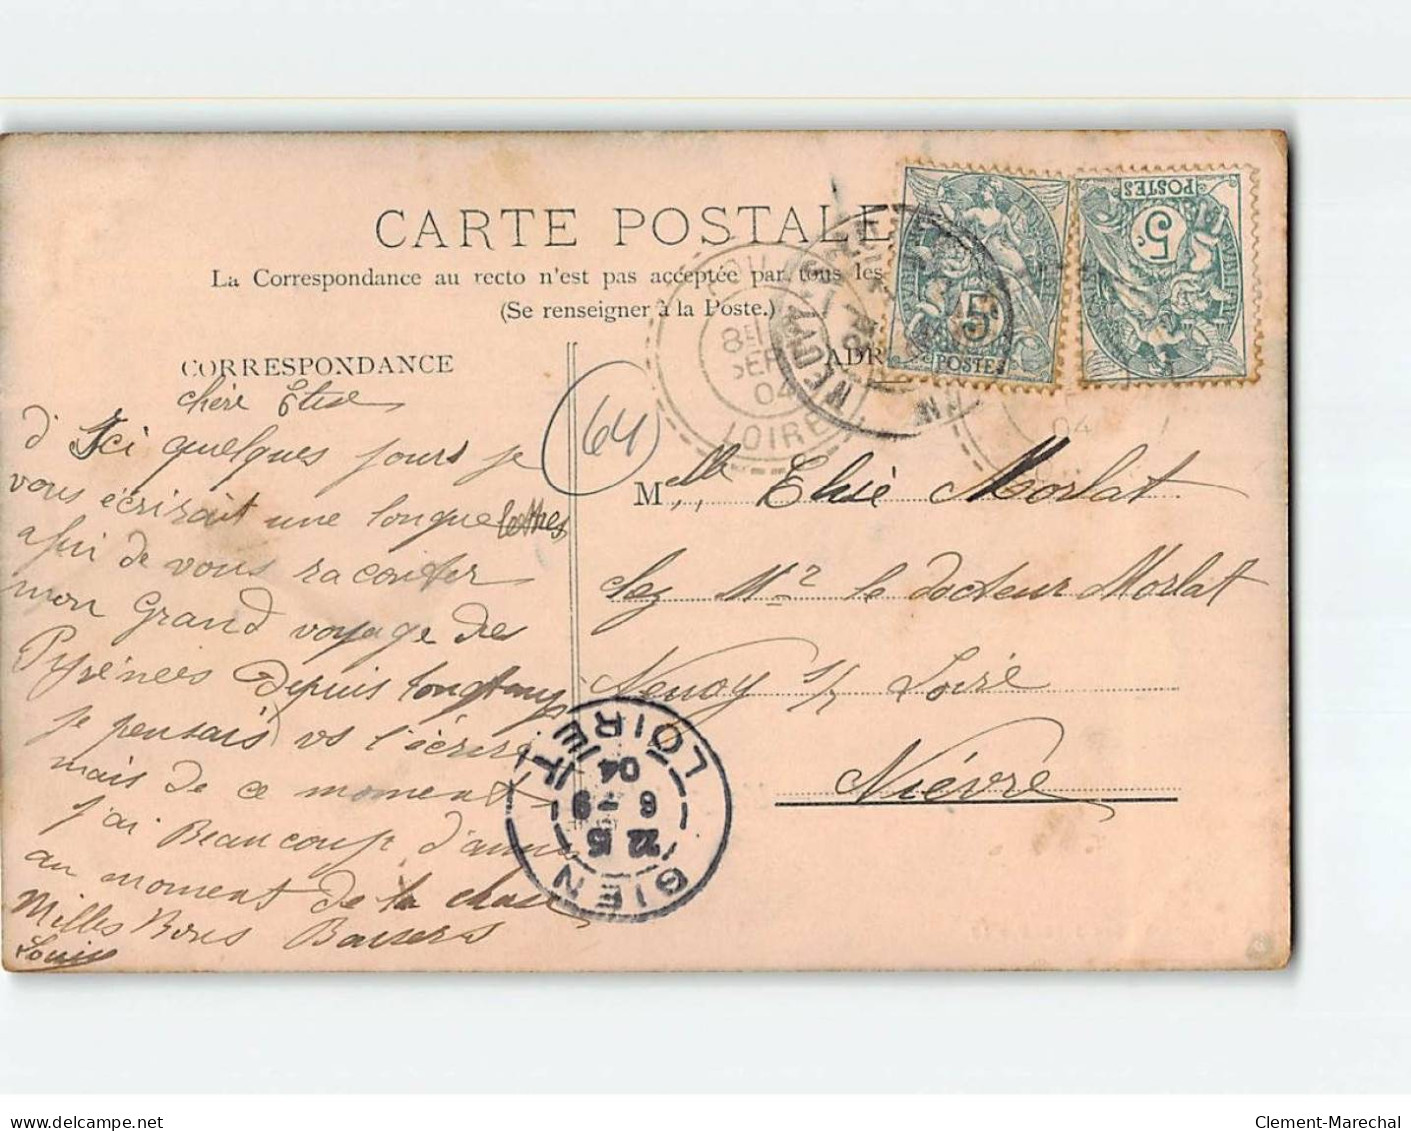 CARTE POSTALE
La Correspondance au recto n'est pas acceptée par tous les
(Se renseigner à la Poste.)
CORRESPONDANCE
ADR
chère Elise
d'Ici quelques jours je
vous écrirait une longue lettres
afin de vous raconter
mon Grand voyage des
Pyrénées depuis longtemps
je pensais vs l'écrire
mais de ce moment
j'ai Beaucoup d'amis
au moment de la chasse
Milles Bons Baisers
Louis
64
Melle Elisé Morlat
chez Mr le docteur Morlat
Neuvy s/ Loire
Nièvre
5c
POSTES
POSTES
5c
8E
SEPT
04
LOIRE
04
GIEN
22 15
6 -9
04
LOIRET
delcampe.net
Clement-Marechal